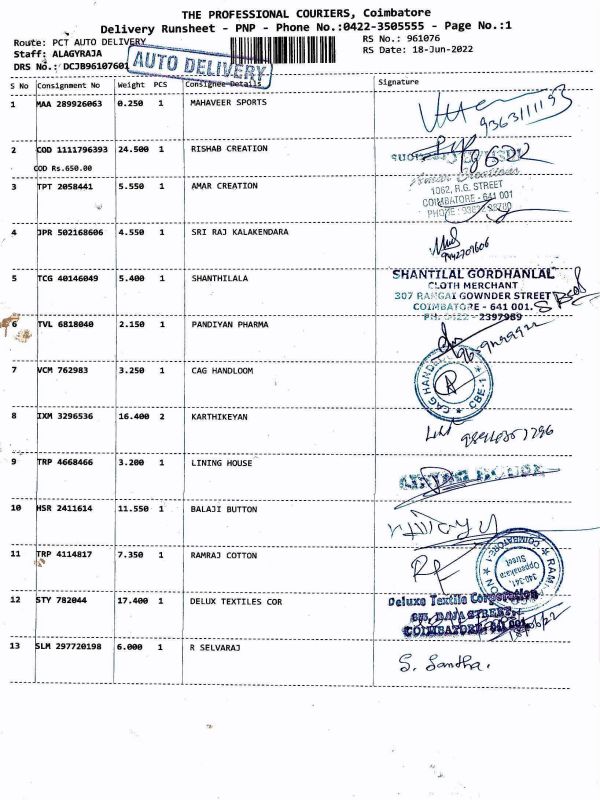 THE PROFESSIONAL COURIERS, Coimbatore
Delivery Runsheet - PNP - Phone No.:0422-3505555 - Page No.:1
Route: PCT AUTO DELIVERY RS No.: 961076
Staff: ALAGYRAJA RS Date: 18-Jun-2022
DRS No.: DCJB96107601
AUTO DELIVERY
S No Consignment No Weight PCS Consignee Details Signature
1 MAA 289926063 0.250 1 MAHAVEER SPORTS
9363111193
2 COD 1111796393 24.500 1 RISHAB CREATION
COD Rs.650.00
3 TPT 2058441 5.550 1 AMAR CREATION
1062, R.G. STREET
COIMBATORE - 641 001
4 JPR 502168606 4.550 1 SRI RAJ KALAKENDARA
5 TCG 40146049 5.400 1 SHANTHILALA
SHANTILAL GORDHANLAL
CLOTH MERCHANT
307 RANGAI GOWNDER STREET
COIMBATORE - 641 001.
PH: 0422 - 2397989
6 TVL 6818040 2.150 1 PANDIYAN PHARMA
7 VCM 762983 3.250 1 CAG HANDLOOM
CAG CBE-1
8 IXM 3296536 16.400 2 KARTHIKEYAN
9 TRP 4668466 3.200 1 LINING HOUSE
LINING HOUSE
10 HSR 2411614 11.550 1 BALAJI BUTTON
11 TRP 4114817 7.350 1 RAMRAJ COTTON
COIMBATORE-1
340-341,
Oppanakara
Street
12 STY 782044 17.400 1 DELUX TEXTILES COR
Deluxe Textile Corporation
RAJA STREET,
COIMBATORE, 641 001
13 SLM 297720198 6.000 1 R SELVARAJ
S. Santha.